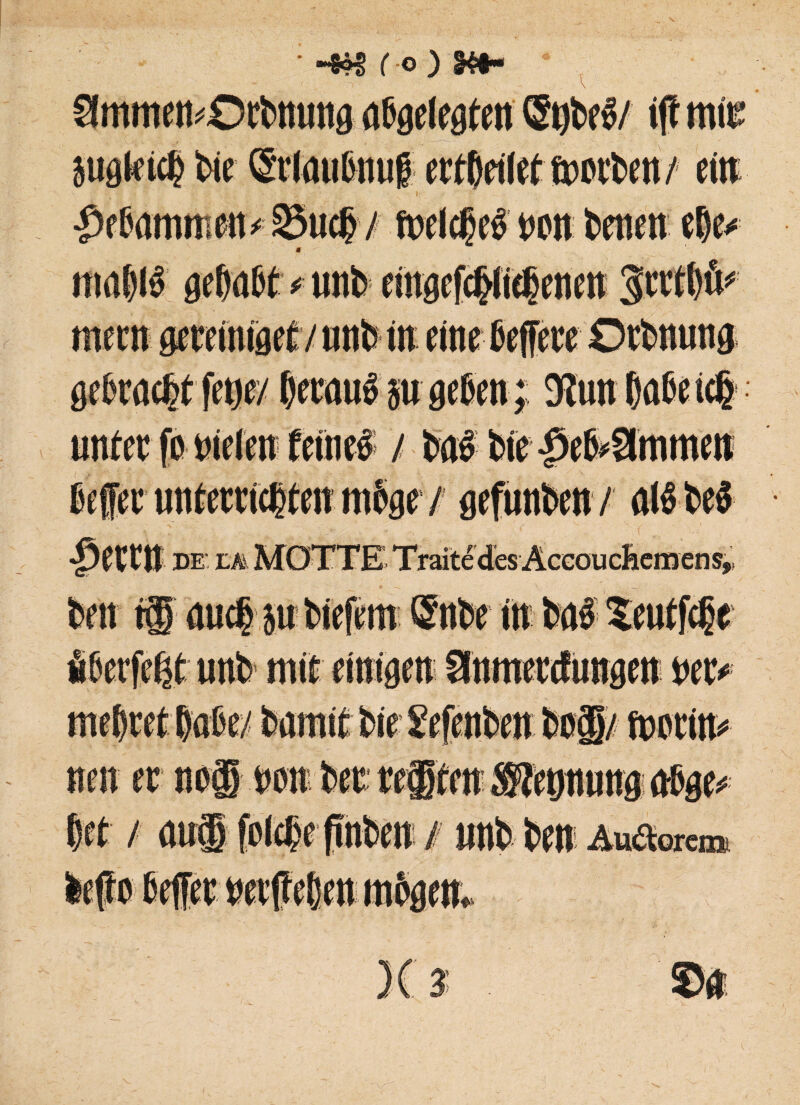 ( o )
Ammen-Ordnung abgelegten Eydes/ ist mir
zugleich die Erlaubnuß ertheilet worden/ ein
Hebammen-Buch / welches von denen ehe-
mahls gehabt - und eingeschlichenen Irrthü-
mern gereiniget / und in eine bessere Ordnung
gebracht seye/ heraus zu geben; Nun habe ich
unter so vielen keines / das die Heb-Ammen
besser unterrichten möge / gefunden / als des
Herrn DE LA MOTTE Traité des Accouchemens,
den ich auch zu diesem Ende in das Teutsche
übersetzt und mit einigen Anmerckungen ver-
mehret habe/ damit die Lesenden doch/ worin-
nen er noch von der rechten Meynung abge-
het / auch solche finden / und den Auctorem
desto besser verstehen mögen.
)( 3 Da